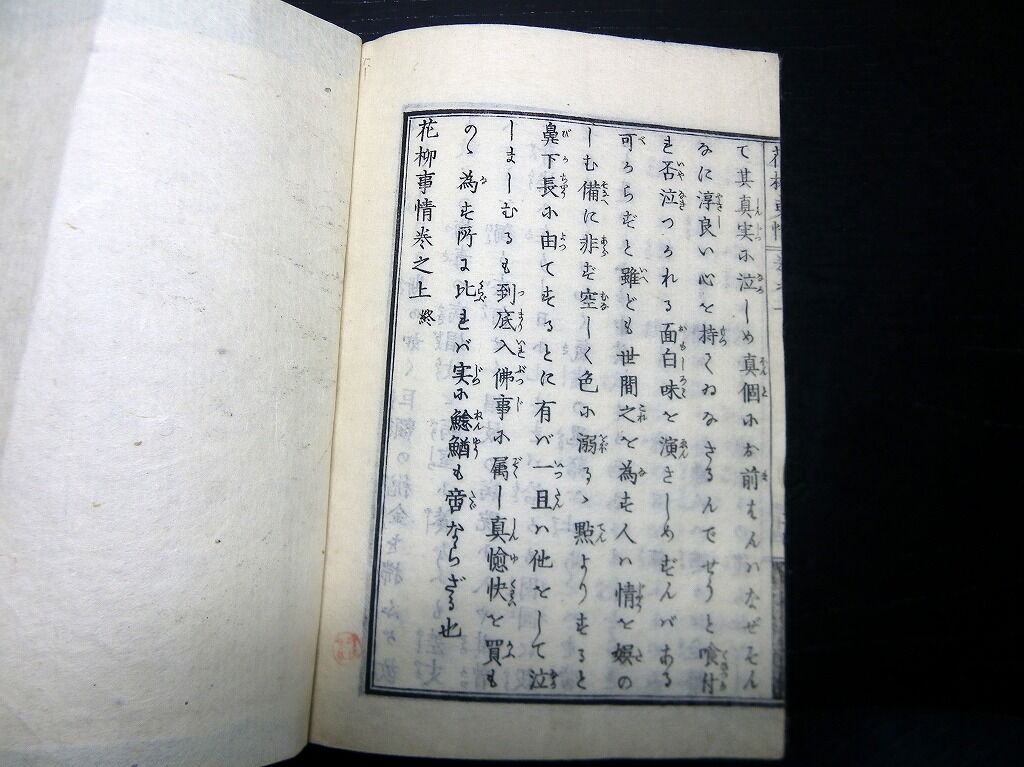 て其真実に泣しめ真個にお前さんハなぜそん
なに淳良い心を持てゐなさるんでせうと喰付
れ否泣つかれる面白味を演さしめずんバある
可からずと雖ども世間之を為す人ハ情を娯の
しむ備に非ず空しく色に溺るゝ點よりすると
鼻下長に由てするとに有バ一旦ハ他をして泣
しましむるも到底入佛事に属し真愉快を買も
のゝ為す所に比れバ実に鯰鰌も啻ならざる也
花柳事情巻之上終